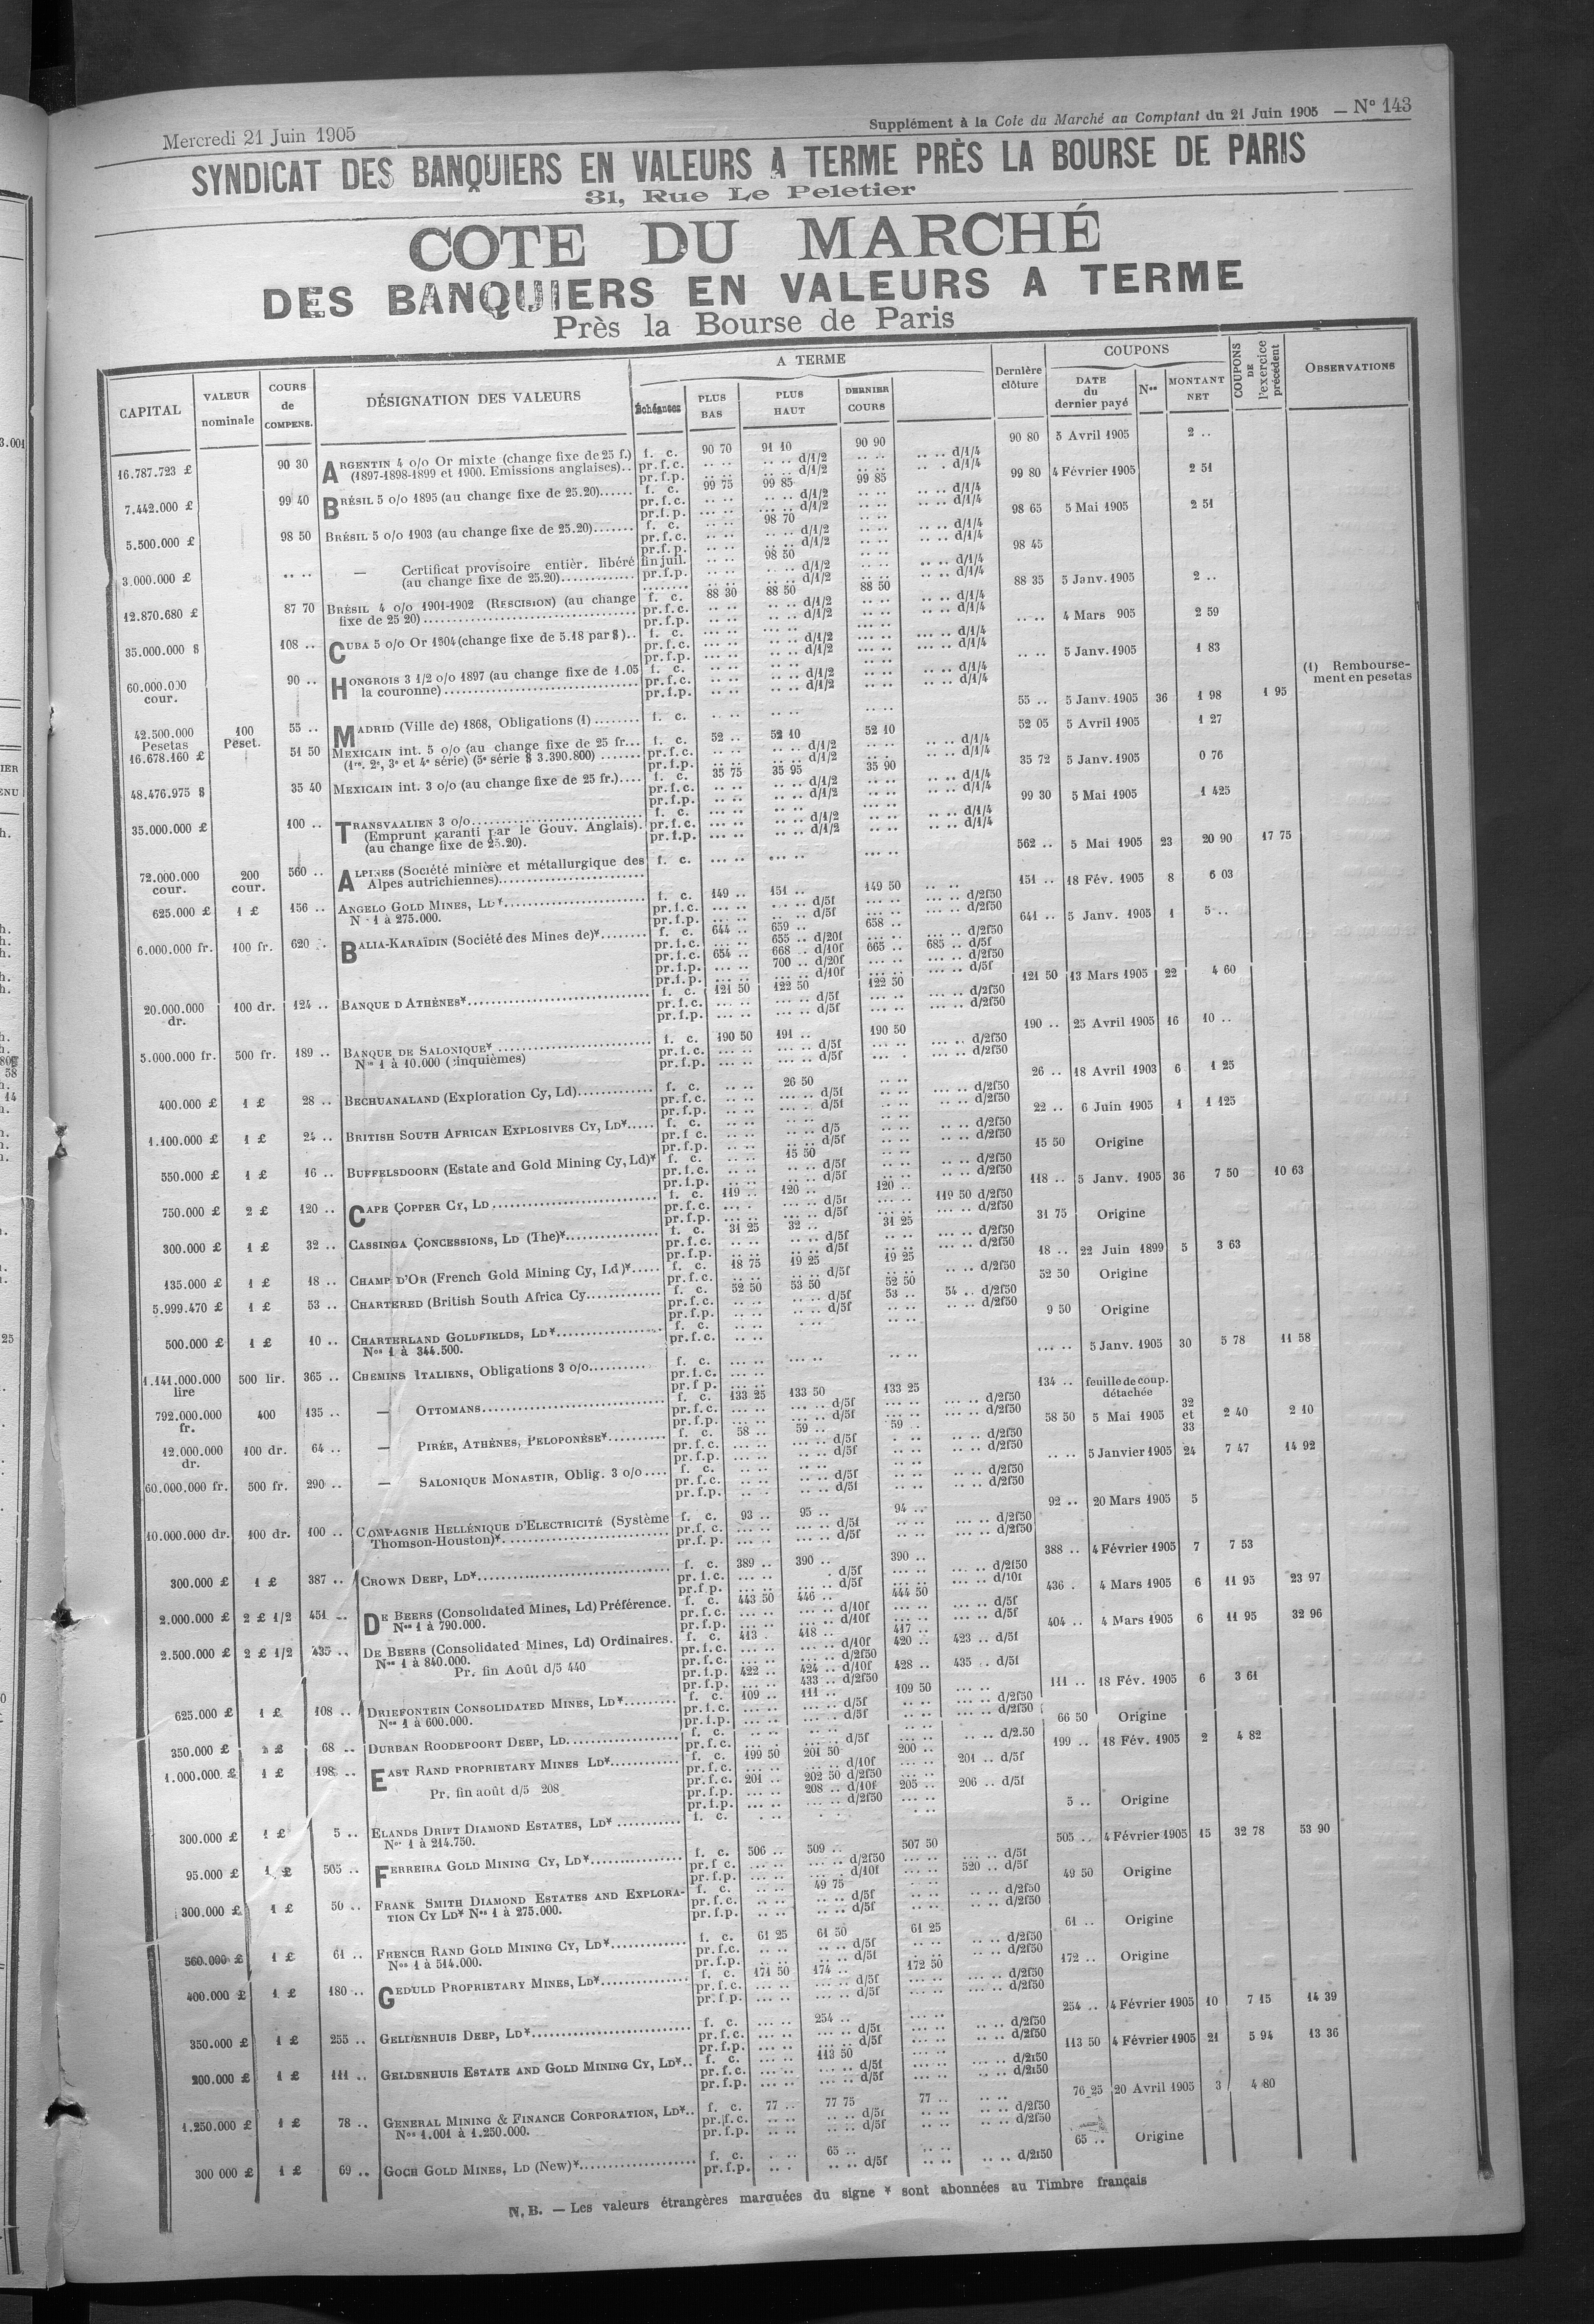 Mercredi 21 Juin 1905
Supplément à la Cote du Marché au Comptant du 21 Juin 1905 — N° 143
SYNDICAT DES BANQUIERS EN VALEURS A TERME PRÈS LA BOURSE DE PARIS
31, Rue Le Peletier
COTE DU MARCHÉ
DES BANQUIERS EN VALEURS A TERME
Près la Bourse de Paris
CAPITAL
VALEUR nominale
COURS de COMPENS.
DÉSIGNATION DES VALEURS
A TERME
Échéances
PLUS BAS
PLUS HAUT
DERNIER COURS
Dernière clôture
COUPONS
DATE du dernier payé
Nos
MONTANT NET
COUPONS DE l'exercice précédent
OBSERVATIONS
16.787.723 £ 90 30 ARGENTIN 4 o/o Or mixte (change fixe de 25 f.) f. c. 90 70 91 10 90 90 90 80 5 Avril 1905 2 ..
(1897-1898-1899 et 1900. Emissions anglaises).. pr.f.c. d/1/2 d/1/4
pr.f.p. d/1/2 d/1/4
7.442.000 £ 99 40 BRÉSIL 5 o/o 1895 (au change fixe de 25.20)...... f. c. 99 75 99 85 99 85 99 80 4 Février 1905 2 51
pr.f.c. d/1/2 d/1/4
pr.f.p. d/1/2 d/1/4
5.500.000 £ 98 50 BRÉSIL 5 o/o 1903 (au change fixe de 25.20)....... f. c. 98 70 98 65 5 Mai 1905 2 51
pr.f.c. d/1/2 d/1/4
pr.f.p. d/1/2 d/1/4
3.000.000 £ .. .. — Certificat provisoire entièr. libéré fin juil. 98 50 98 45
(au change fixe de 25.20)............. pr.f.p. d/1/2 d/1/4
d/1/2 d/1/4
12.870.680 £ 87 70 BRÉSIL 4 o/o 1901-1902 (RESCISION) (au change f. c. 88 30 88 50 88 50 88 35 5 Janv. 1905 2 ..
fixe de 25 20)........ pr.f.c. d/1/2 d/1/4
pr.f.p. d/1/2 d/1/4
35.000.000 $ 108 .. CUBA 5 o/o Or 1904 (change fixe de 5.18 par $).. f. c. .. .. 4 Mars 905 2 59
pr.f.c. d/1/2 d/1/4
pr.f.p. d/1/2 d/1/4
60.000.000 cour. 90 .. HONGROIS 3 1/2 o/o 1897 (au change fixe de 1.05 f. c. .. .. 5 Janv. 1905 1 83
la couronne)........ pr.f.c. d/1/2 d/1/4
pr.f.p. d/1/2 d/1/4
(1) Rembourse-
ment en pesetas
42.500.000 Pesetas 100 Peset. 55 .. MADRID (Ville de) 1868, Obligations (1)........ f. c. 55 .. 5 Janv. 1905 36 1 98 1 95
16.678.160 £ 51 50 MEXICAIN int. 5 o/o (au change fixe de 25 fr... f. c. 52 .. 52 10 52 10 52 05 5 Avril 1905 1 27
(1re, 2e, 3e et 4e série) (5e série $ 3.390.800)....... pr.f.c. d/1/2 d/1/4
pr.f.p. d/1/2 d/1/4
48.476.975 $ 35 40 MEXICAIN int. 3 o/o (au change fixe de 25 fr.).... f. c. 35 75 35 95 35 90 35 72 5 Janv. 1905 0 76
pr.f.c. d/1/2 d/1/4
pr.f.p. d/1/2 d/1/4
35.000.000 £ 100 .. TRANSVAALIEN 3 o/o........ f. c. 99 30 5 Mai 1905 1 425
(Emprunt garanti par le Gouv. Anglais). pr.f.c. d/1/2 d/1/4
(au change fixe de 25.20). pr.f.p. d/1/2 d/1/4
72.000.000 cour. 200 cour. 560 .. ALPINES (Société minière et métallurgique des f. c. 562 .. 5 Mai 1905 23 20 90 17 75
Alpes autrichiennes)........
625.000 £ 1 £ 156 .. ANGELO GOLD MINES, LD*........ f. c. 149 .. 151 .. 149 50 151 .. 18 Fév. 1905 8 6 03
N° 1 à 275.000. pr.f.c. d/5f d/2f50
pr.f.p. d/5f d/2f50
6.000.000 fr. 100 fr. 620 .. BALIA-KARAÏDIN (Société des Mines de)*........ f. c. 644 .. 659 .. 658 .. 641 .. 5 Janv. 1905 1 5 ..
pr.f.c. 655 .. d/20f d/2f50
pr.f.c. 654 .. 668 .. d/10f 665 .. 685 .. d/5f
pr.f.p. 700 .. d/20f d/2f50
pr.f.p. d/10f d/5f
20.000.000 dr. 100 dr. 124 .. BANQUE D'ATHÈNES*........ f. c. 121 50 122 50 122 50 121 50 13 Mars 1905 22 4 60
pr.f.c. d/5f d/2f50
pr.f.p. d/5f d/2f50
5.000.000 fr. 500 fr. 189 .. BANQUE DE SALONIQUE*........ f. c. 190 50 191 .. 190 50 190 .. 25 Avril 1905 16 10 ..
Nos 1 à 10.000 (cinquièmes) pr.f.c. d/5f d/2f50
pr.f.p. d/5f d/2f50
400.000 £ 1 £ 28 .. BECHUANALAND (Exploration Cy, Ld)........ f. c. 26 50 26 .. 18 Avril 1903 6 1 25
pr.f.c. d/5f d/2f50
pr.f.p. d/5f d/2f50
1.100.000 £ 1 £ 24 .. BRITISH SOUTH AFRICAN EXPLOSIVES CY, LD*..... f. c. 22 .. 6 Juin 1905 1 1 125
pr.f.c. d/5 d/2f50
pr.f.p. d/5f d/2f50
550.000 £ 1 £ 16 .. BUFFELSDOORN (Estate and Gold Mining Cy, Ld)* f. c. 15 50 15 50 Origine
pr.f.c. d/5f d/2f50
pr.f.p. d/5f d/2f50
750.000 £ 2 £ 120 .. CAPE COPPER CY, LD........ f. c. 119 .. 120 .. 120 .. 118 .. 5 Janv. 1905 36 7 50 10 63
pr.f.c. d/5f 119 50 d/2f50
pr.f.p. d/5f d/2f50
300.000 £ 1 £ 32 .. CASSINGA CONCESSIONS, LD (The)*........ f. c. 31 25 32 .. 31 25 31 75 Origine
pr.f.c. d/5f d/2f50
pr.f.p. d/5f d/2f50
135.000 £ 1 £ 18 .. CHAMP D'OR (French Gold Mining Cy, Ld)*..... f. c. 18 75 19 25 19 25 18 .. 22 Juin 1899 5 3 63
pr.f.c. d/5f d/2f50
5.999.470 £ 1 £ 53 .. CHARTERED (British South Africa Cy........ f. c. 52 50 53 50 52 50 52 50 Origine
pr.f.c. d/5f 53 .. 54 .. d/2f50
pr.f.p. d/5f d/2f50
500.000 £ 1 £ 10 .. CHARTERLAND GOLDFIELDS, LD*........ f. c. 9 50 Origine
Nos 1 à 344.500. pr.f.c.
1.141.000.000 lire 500 lir. 365 .. CHEMINS ITALIENS, Obligations 3 o/o........ f. c. 5 Janv. 1905 30 5 78 11 58
pr.f.c.
pr.f.p.
792.000.000 fr. 400 135 .. — OTTOMANS........ f. c. 133 25 133 50 133 25 134 .. feuille de coup. détachée
pr.f.c. d/5f d/2f50
pr.f.p. d/5f d/2f50
12.000.000 dr. 100 dr. 64 .. — PIRÉE, ATHÈNES, PELOPONÈSE*........ f. c. 58 .. 59 .. 59 .. 58 50 5 Mai 1905 32 et 33 2 40 2 10
pr.f.c. d/5f d/2f50
pr.f.p. d/5f d/2f50
60.000.000 fr. 500 fr. 290 .. — SALONIQUE MONASTIR, Oblig. 3 o/o.... f. c. 5 Janvier 1905 24 7 47 14 92
pr.f.c. d/5f d/2f50
pr.f.p. d/5f d/2f50
10.000.000 dr. 100 dr. 100 .. COMPAGNIE HELLÉNIQUE D'ELECTRICITÉ (Système f. c. 93 .. 95 .. 94 .. 92 .. 20 Mars 1905 5
Thomson-Houston)*........ pr.f.c. d/5f d/2f50
pr.f.p. d/5f d/2f50
300.000 £ 1 £ 387 .. CROWN DEEP, LD*........ f. c. 389 .. 390 .. 390 .. 388 .. 4 Février 1905 7 7 53
pr.f.c. d/5f d/2f50
pr.f.p. d/5f d/10f
2.000.000 £ 2 £ 1/2 451 .. DE BEERS (Consolidated Mines, Ld) Préférence. f. c. 443 50 446 .. 444 50 436 . 4 Mars 1905 6 11 95 23 97
Nos 1 à 790.000. pr.f.c. d/10f d/5f
pr.f.p. d/10f d/5f
2.500.000 £ 2 £ 1/2 435 .. DE BEERS (Consolidated Mines, Ld) Ordinaires. f. c. 413 . 418 .. 417 .. 404 .. 4 Mars 1905 6 11 95 32 96
Nos 1 à 840.000. pr.f.c. d/10f 420 .. 423 .. d/5f
pr.f.c. d/2f50
Pr. fin Août d/5 440 pr.f.p. 422 .. 424 .. d/10f 428 .. 435 .. d/5f
pr.f.p. 433 .. d/2f50
625.000 £ 1 £ 108 .. DRIEFONTEIN CONSOLIDATED MINES, LD*........ f. c. 109 .. 111 .. 109 50 111 .. 18 Fév. 1905 6 3 61
Nos 1 à 600.000. pr.f.c. d/5f d/2f50
pr.f.p. d/5f d/2f50
350.000 £ 68 .. DURBAN ROODEPOORT DEEP, LD........ f. c. 66 50 Origine
pr.f.c. d/5f d/2.50
1.000.000 £ 1 £ 198 .. EAST RAND PROPRIETARY MINES LD*........ f. c. 199 50 201 50 200 .. 199 .. 18 Fév. 1905 2 4 82
pr.f.c. d/10f 201 .. d/5f
pr.f.c. 201 .. 202 50 d/2f50
Pr. fin août d/5 208 pr.f.p. 208 .. d/10f 205 .. 206 .. d/5f
pr.f.p. d/2f50
300.000 £ 1 £ 5 .. ELANDS DRIFT DIAMOND ESTATES, LD*........ f. c. 5 .. Origine
Nos 1 à 214.750.
95.000 £ 1 £ 505 .. FERREIRA GOLD MINING CY, LD*........ f. c. 506 .. 509 .. 507 50 505 .. 4 Février 1905 15 32 78 53 90
pr.f.c. d/2f50 d/5f
pr.f.p. d/10f 520 .. d/5f
300.000 £ 1 £ 50 .. FRANK SMITH DIAMOND ESTATES AND EXPLORA- f. c. 49 75 49 50 Origine
TION CY LD* Nos 1 à 275.000. pr.f.c. d/5f d/2f50
pr.f.p. d/5f d/2f50
560.000 £ 1 £ 61 .. FRENCH RAND GOLD MINING CY, LD*........ f. c. 61 25 61 50 61 25 61 .. Origine
Nos 1 à 514.000. pr.f.c. d/5f d/2f50
pr.f.p. d/5f d/2f50
400.000 £ 1 £ 180 .. GEDULD PROPRIETARY MINES, LD*........ f. c. 171 50 174 .. 172 50 172 .. Origine
pr.f.c. d/5f d/2f50
pr.f.p. d/5f d/2f50
350.000 £ 1 £ 255 .. GELDENHUIS DEEP, LD*........ f. c. 254 .. 254 .. 4 Février 1905 10 7 15 14 39
pr.f.c. d/5f d/2f50
pr.f.p. d/5f d/2f50
200.000 £ 1 £ 111 .. GELDENHUIS ESTATE AND GOLD MINING CY, LD*.. f. c. 113 50 113 50 4 Février 1905 21 5 94 13 36
pr.f.c. d/5f d/2f50
pr.f.p. d/5f d/2f50
1.250.000 £ 1 £ 78 .. GENERAL MINING & FINANCE CORPORATION, LD*.. f. c. 77 .. 77 75 77 .. 76 25 20 Avril 1905 3 4 80
Nos 1.001 à 1.250.000. pr.f.c. d/5f d/2f50
pr.f.p. d/5f d/2f50
300 000 £ 1 £ 69 .. GOCH GOLD MINES, LD (New)*........ f. c. 65 .. 65 .. Origine
pr.f.p. d/5f d/2f50
N. B. — Les valeurs étrangères marquées du signe * sont abonnées au Timbre français